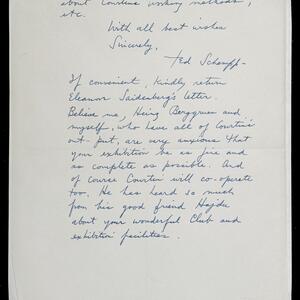 about Courtin's working methods,
etc.
With all best wishes
Sincerely,
Ted Schempp-
If convenient, kindly return
Eleanor Saidenberg's letter.
Believe me, Heinz Berggruen and
myself, who have all of Courtin's
out-put, are very anxious that
your exhibition be as fine and
as complete as possible. And
of course Courtin will co-operate
too. He has heard so much
from his good friend Hajdu
about your wonderful Club and
exhibition facilities.